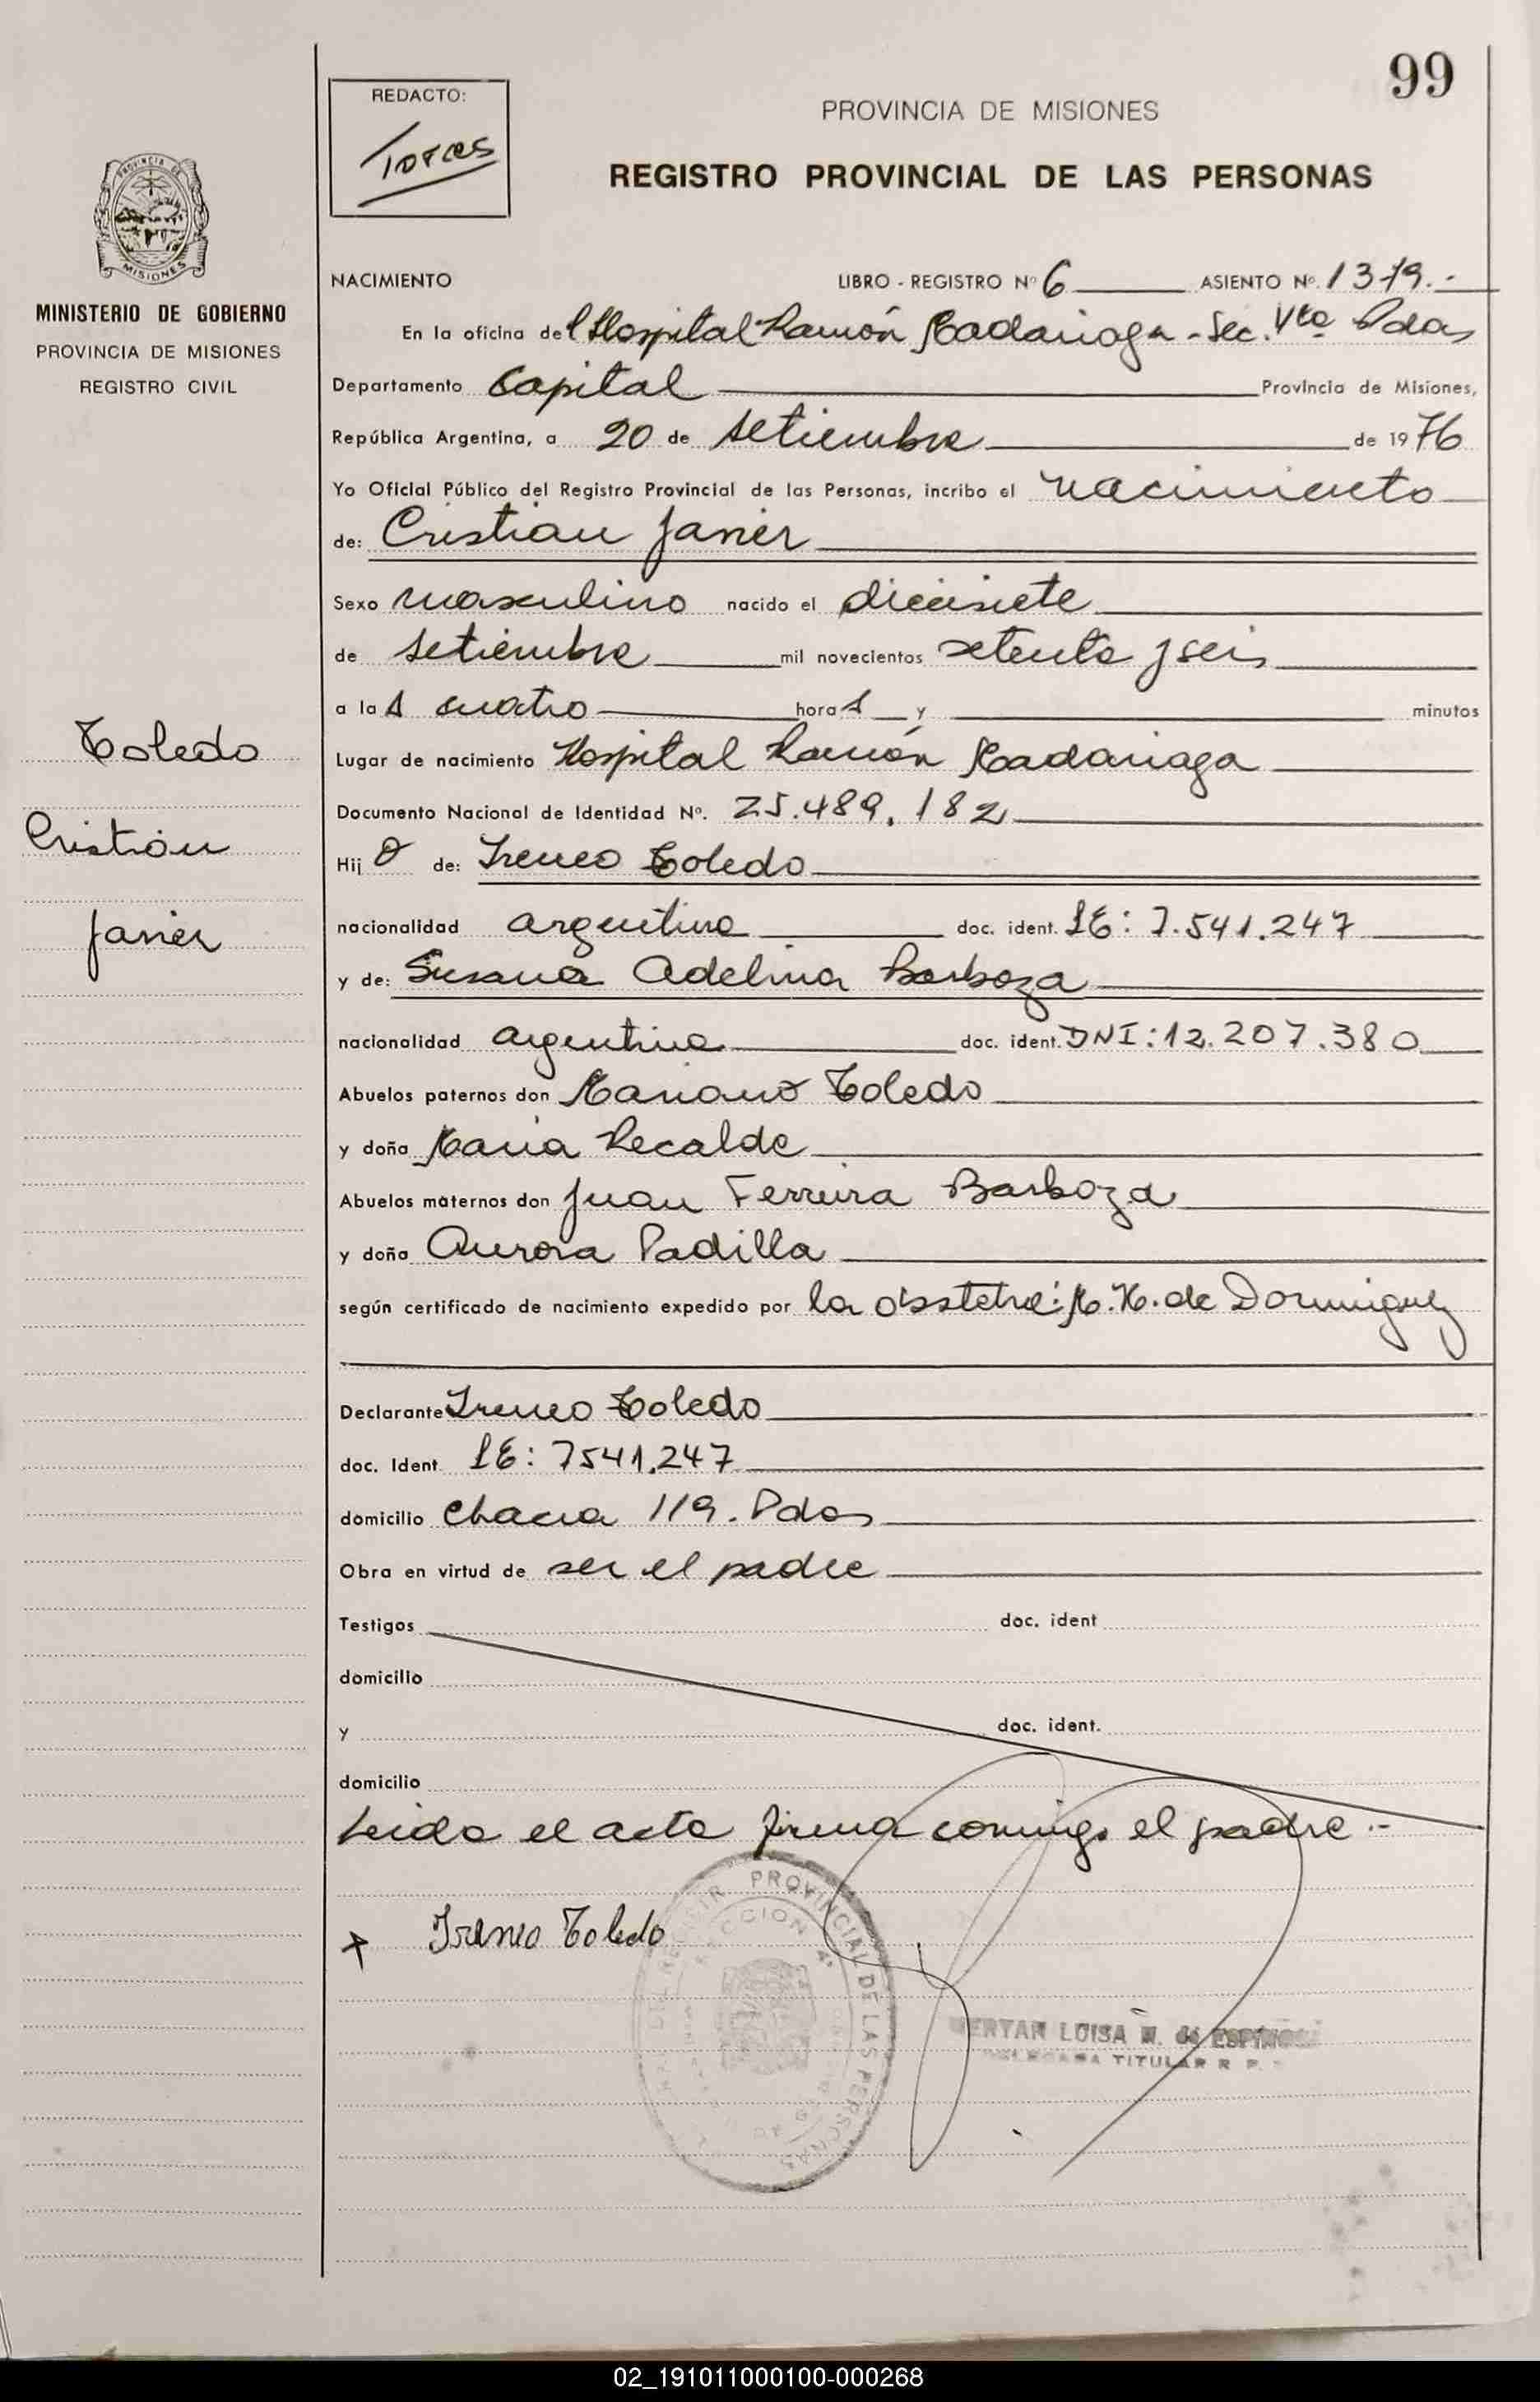 99
REDACTO:
Torres
PROVINCIA DE MISIONES
REGISTRO PROVINCIAL DE LAS PERSONAS
PROVINCIA DE
MISIONES
MINISTERIO DE GOBIERNO
PROVINCIA DE MISIONES
REGISTRO CIVIL
NACIMIENTO LIBRO - REGISTRO Nº 6 ASIENTO Nº. 1379.-
En la oficina del Hospital Ramón Madariaga - Sec. Vta Pdas
Departamento Capital Provincia de Misiones,
República Argentina, a 20 de setiembre de 1976
Yo Oficial Público del Registro Provincial de las Personas, incribo el nacimiento
de: Cristian Javier
Sexo masculino nacido el diecisiete
de setiembre mil novecientos setenta y seis
a las cuatro horas y minutos
Toledo
Cristián
Javier
Lugar de nacimiento Hospital Ramón Madariaga
Documento Nacional de Identidad Nº. 25.489.182
Hijo de: Ireneo Toledo
nacionalidad argentino doc. ident. LE: 7.541.247
y de: Susana Adelina Barboza
nacionalidad argentina doc. ident. DNI: 12.207.380
Abuelos paternos don Mariano Toledo
y doña Maria Recalde
Abuelos maternos don Juan Ferreira Barboza
y doña Aurora Padilla
según certificado de nacimiento expedido por la obstetra: M. H. de Dominguez
Declarante Ireneo Toledo
doc. Ident. LE: 7541.247
domicilio Chacra 119. Pdas
Obra en virtud de ser el padre
Testigos doc. ident
domicilio
y doc. ident.
domicilio
Leida el acta firma conmigo el padre.-
x Ireneo Toledo
PROVINCIAL DE LAS PERSONAS
LUISA N. de ESPINOSA
TITULAR R. P.
02_191011000100-000268